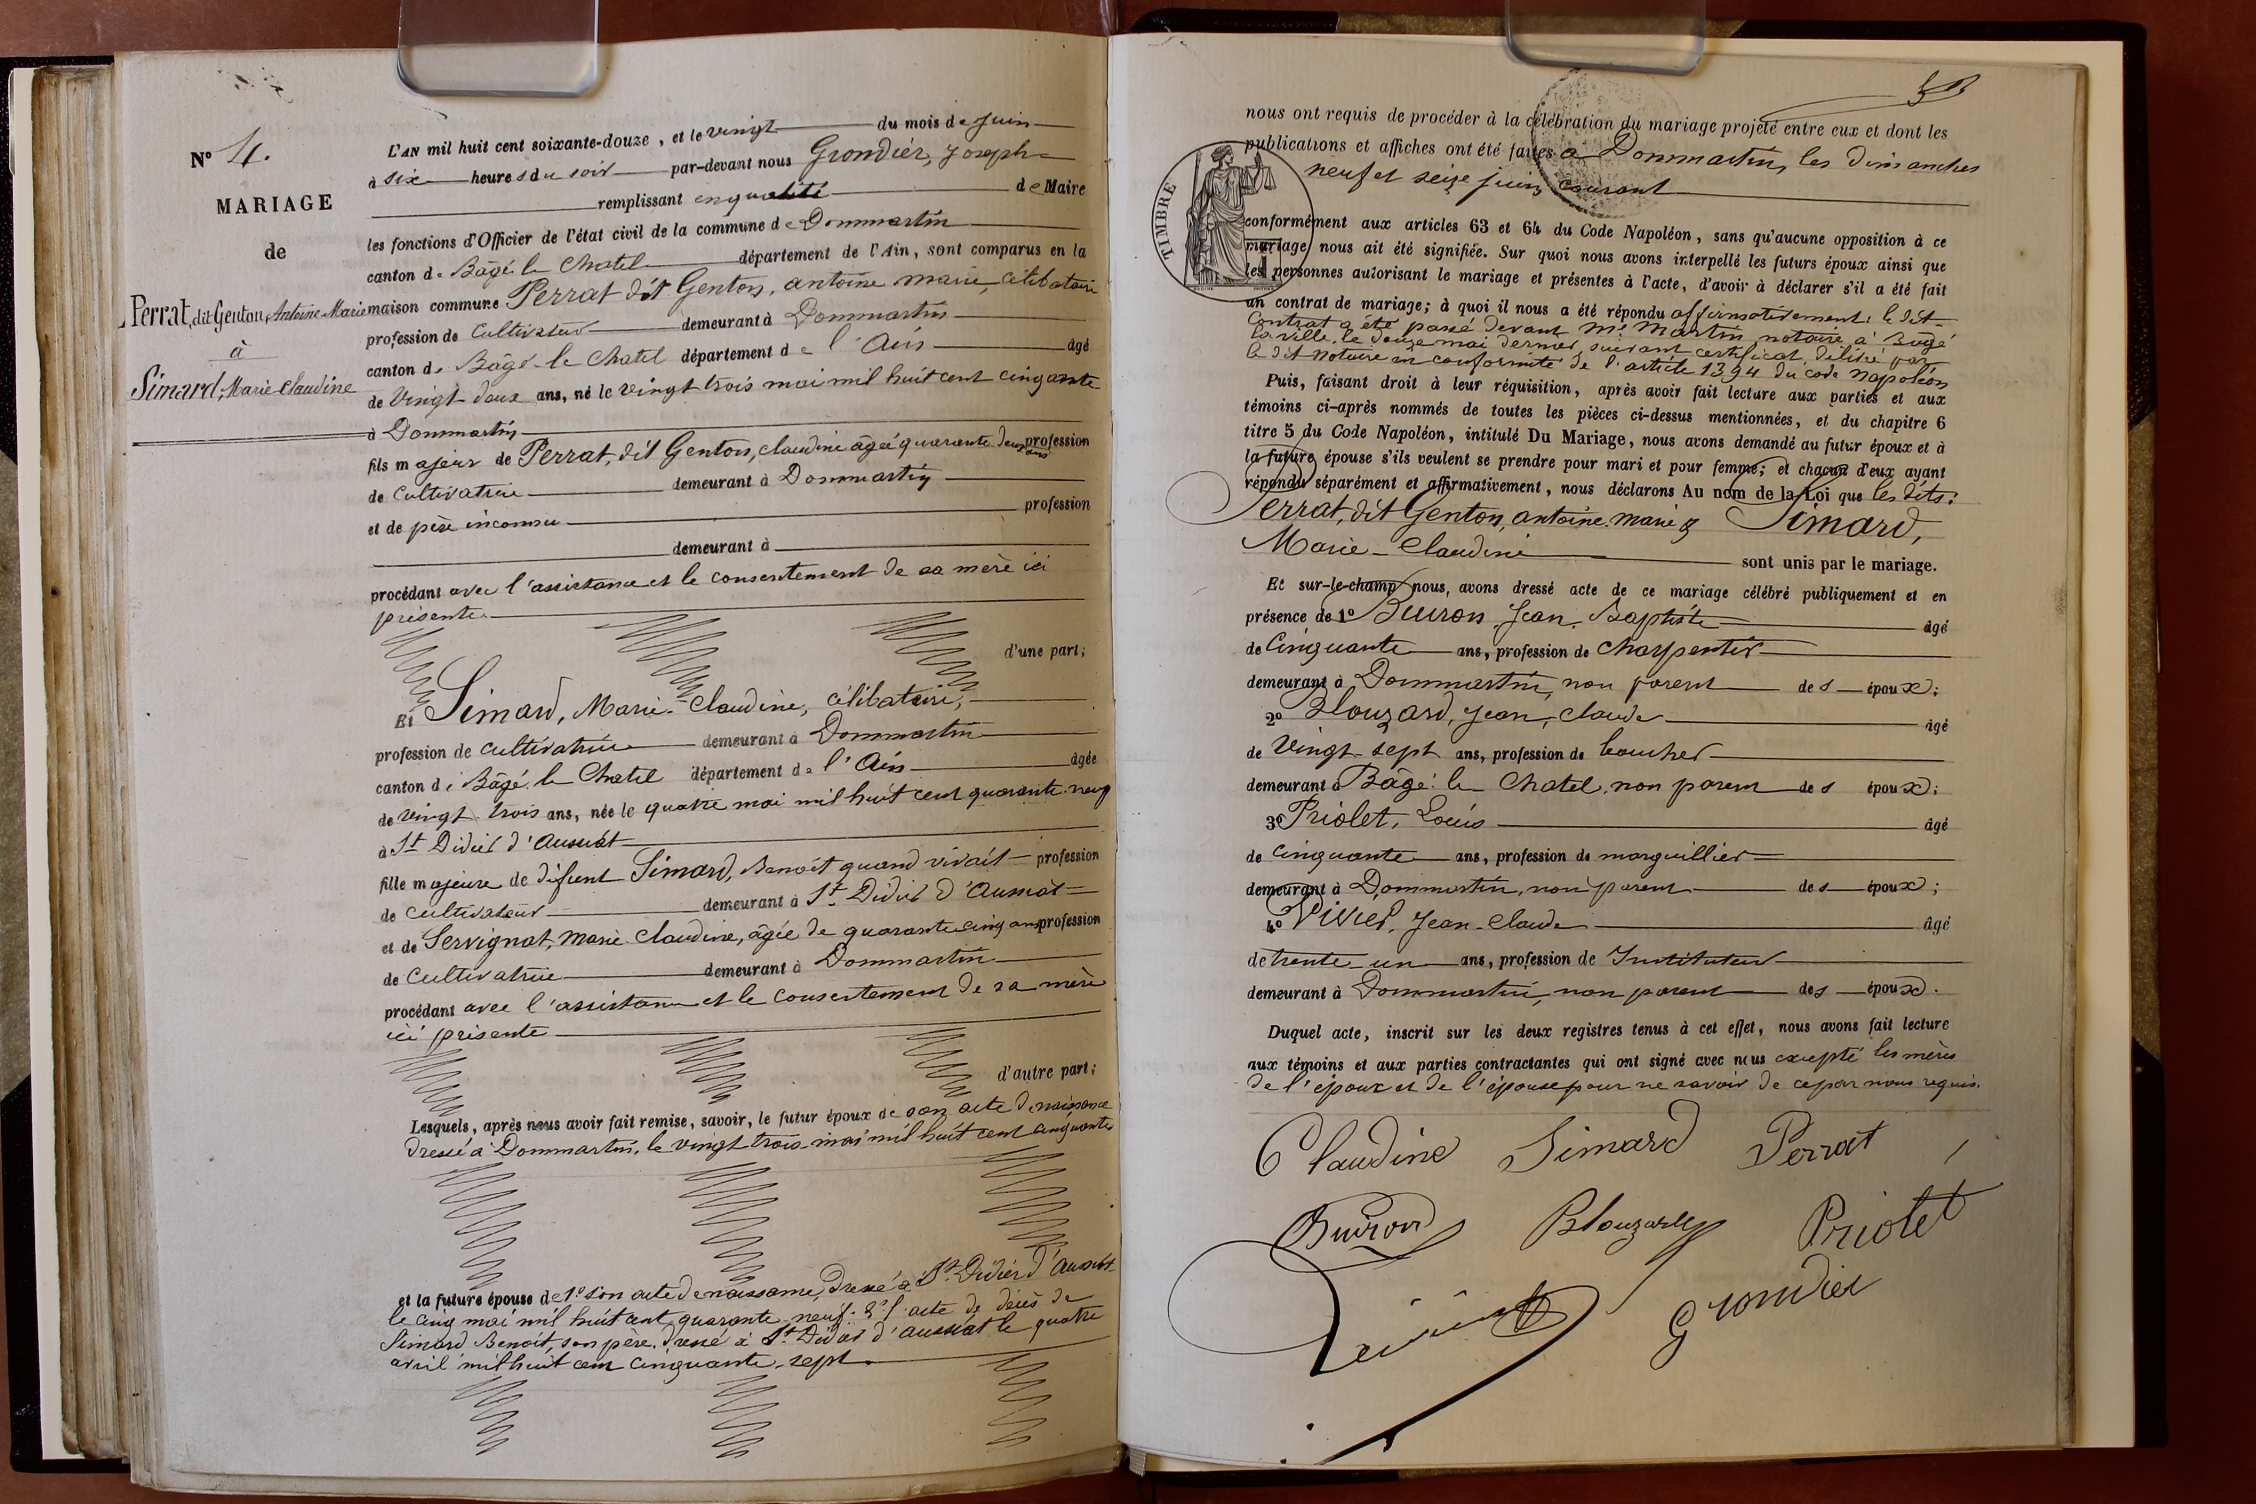 N° 4.
MARIAGE
de
Perrat, dit Genton, Antoine Marie
à
Simard, Marie Claudine
L'AN mil huit cent soixante-douze, et le vingt du mois de juin
à six heures du soir par-devant nous Grondier, Joseph
remplissant en qualité de Maire
les fonctions d'Officier de l'état civil de la commune de Dommartin
canton de Bâgé le Chatel département de l'Ain, sont comparus en la
maison commune Perrat dit Genton, antoine marie, célibataire
profession de cultivateur demeurant à Dommartin
canton de Bâgé-le Chatel département de l'Ain âgé
de vingt-deux ans, né le vingt trois mai mil huit cent cinquante
à Dommartin
fils majeur de Perrat, dit Genton, claudine âgée quarante-deux ans profession
de cultivatrice demeurant à Dommartin
et de père inconnu profession
demeurant à
procédant avec l'assistance et le consentement de sa mère ici
présente
d'une part;
Et Simard, Marie-Claudine, célibataire,
profession de cultivatrice demeurant à Dommartin
canton de Bâgé le Chatel département de l'Ain âgée
de vingt-trois ans, née le quatre mai mil huit cent quarante-neuf
à St Didier d'Aussiat
fille majeure de défunt Simard, Benoît quand vivait profession
de cultivateur demeurant à St Didier d'Aussiat
et de Servignat, Marie Claudine, âgée de quarante cinq ans profession
de cultivatrice demeurant à Dommartin
procédant avec l'assistance et le consentement de sa mère
ici présente
d'autre part;
Lesquels, après nous avoir fait remise, savoir, le futur époux de son acte de naissance
dressé à Dommartin, le vingt trois mai mil huit cent cinquante
et la future épouse de 1° son acte de naissance, dressé à St Didier d'Aussiat
le cinq mai mil huit cent quarante neuf: 2° l'acte de décès de
Simard Benoit, son père, dressé à St Didier d'Aussiat le quatre
avril mil huit cent cinquante-sept
nous ont requis de procéder à la célébration du mariage projeté entre eux et dont les
publications et affiches ont été faites à Dommartin, les dimanches
neuf et seize juin courant
TIMBRE
conformément aux articles 63 et 64 du Code Napoléon, sans qu'aucune opposition à ce
mariage nous ait été signifiée. Sur quoi nous avons interpellé les futurs époux ainsi que
les personnes autorisant le mariage et présentes à l'acte, d'avoir à déclarer s'il a été fait
un contrat de mariage; à quoi il nous a été répondu affirmativement: le dit
contrat a été passé devant Me Martin, notaire à Bâgé
la ville, le douze mai dernier, suivant certificat délivré par
le dit notaire en conformité de l'article 1394 du code Napoléon
Puis, faisant droit à leur réquisition, après avoir fait lecture aux parties et aux
témoins ci-après nommés de toutes les pièces ci-dessus mentionnées, et du chapitre 6
titre 5 du Code Napoléon, intitulé Du Mariage, nous avons demandé au futur époux et à
la future épouse s'ils veulent se prendre pour mari et pour femme; et chacun d'eux ayant
répondu séparément et affirmativement, nous déclarons Au nom de la Loi que les dits:
Perrat, dit Genton, antoine-marie & Simard,
Marie-Claudine sont unis par le mariage.
Et sur-le-champ nous, avons dressé acte de ce mariage célébré publiquement et en
présence de 1° Buiron, Jean-Baptiste âgé
de cinquante ans, profession de charpentier
demeurant à Dommartin, non parent des époux;
2° Blouzard, Jean-Claude âgé
de vingt-sept ans, profession de boucher
demeurant à Bâgé le Chatel, non parent des époux;
3° Priolet, Louis âgé
de cinquante ans, profession de marguillier
demeurant à Dommartin, non parent des époux;
4° Vivier, Jean-Claude âgé
de trente-un ans, profession de Instituteur
demeurant à Dommartin, non parent des époux.
Duquel acte, inscrit sur les deux registres tenus à cet effet, nous avons fait lecture
aux témoins et aux parties contractantes qui ont signé avec nous excepté les mères
de l'époux et de l'épouse pour ne savoir de ce par nous requis.
Claudine Simard Perrat
Buiron Blouzard Priolet
Grondier